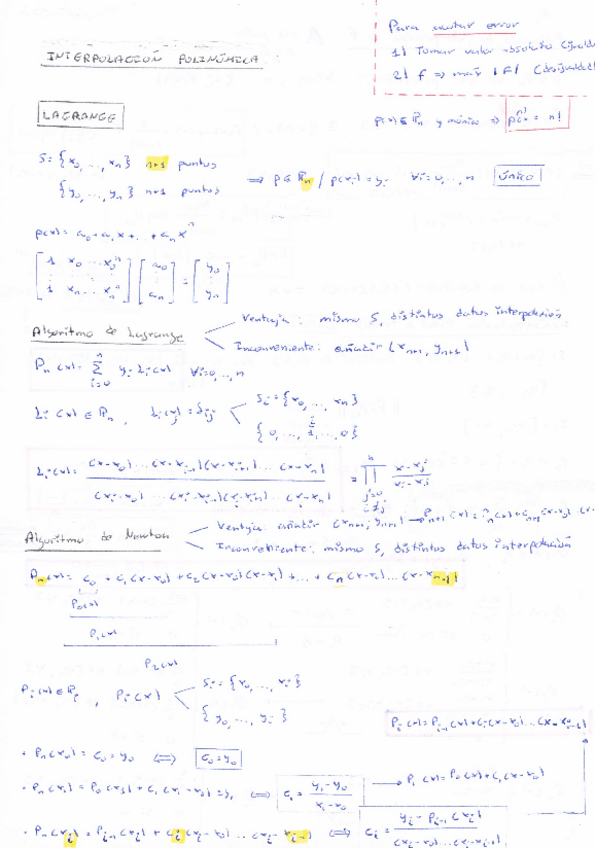 Para acotar error
1) Tomar valor absoluto (igualda
2) f ⇒ máx |F| (desigualdad)
INTERPOLACIÓN POLINÓMICA
p(x) ∈ ℙn y mónico ⇒ p^(n)(x) = n!
LAGRANGE
S = {x0, ..., xn} n+1 puntos
{y0, ..., yn} n+1 puntos
⇒ p ∈ ℙn / p(xi) = yi ∀i = 0, ..., n único
p(x) = a0 + a1x + ... + anx^n
[1 x0 ... x0^n] [a0] = [y0]
[1 xn ... xn^n] [an] [yn]
Algoritmo de Lagrange
Ventaja: mismo S, distintos datos interpolación
Inconveniente: añadir (xn+1, yn+1)
Pn(x) = Σ i=0 n yi Li(x) ∀i = 0, ..., n
Li(x) ∈ ℙn, Li(xj) = δij
Si = {x0, ..., xn}
{0, ..., 1, ..., 0}
Li(x) = (x-x0)...(x-xi-1)(x-xi+1)...(x-xn) / (xi-x0)...(xi-xi-1)(xi-xi+1)...(xi-xn) = ∏ j=0 i≠j n (x-xj)/(xi-xj)
Algoritmo de Newton
Ventaja: añadir (xn+1, yn+1) → Pn+1(x) = Pn(x) + cn+1(x-x0)...(x-
Inconveniente: mismo S, distintos datos interpolación
Pn(x) = c0 + c1(x-x0) + c2(x-x0)(x-x1) + ... + cn(x-x0)...(x-xn-1)
P0(x)
P1(x)
P2(x)
Pi(x) ∈ ℙi, Pi(x)
Si = {x0, ..., xi}
{y0, ..., yi}
Pi(x) = Pi-1(x) + ci(x-x0)...(x-xi-1)
· Pn(x0) = c0 = y0 ⇔ c0 = y0
· Pn(x1) = P0(x1) + c1(x1-x0) = y1 ⇔ c1 = (y1-y0)/(x1-x0) → P1(x) = P0(x) + c1(x-x0)
· Pn(xi) = Pi-1(xi) + ci(xi-x0)...(xi-xi-1) ⇔ ci = (yi - Pi-1(xi))/((xi-x0)...(xi-xi-1))